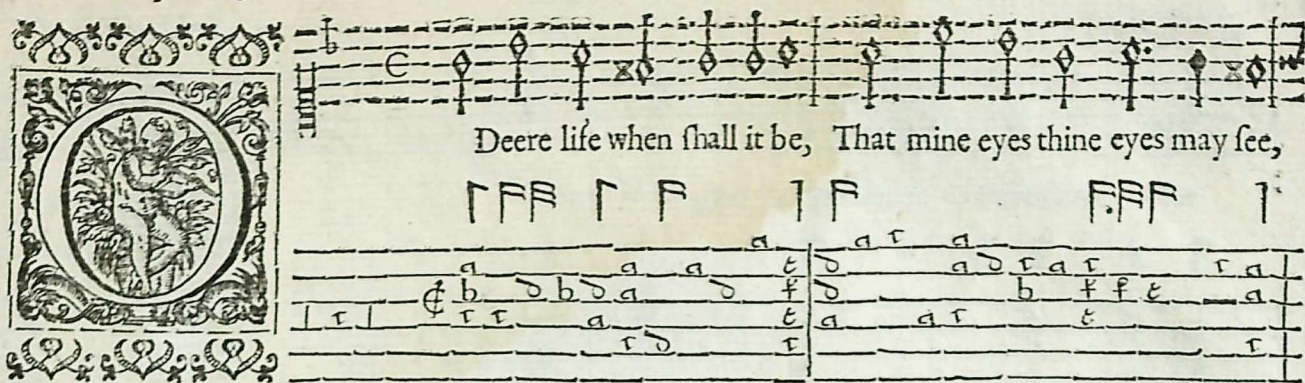 O
Deere life when ſhall it be, That mine eyes thine eyes may ſee,